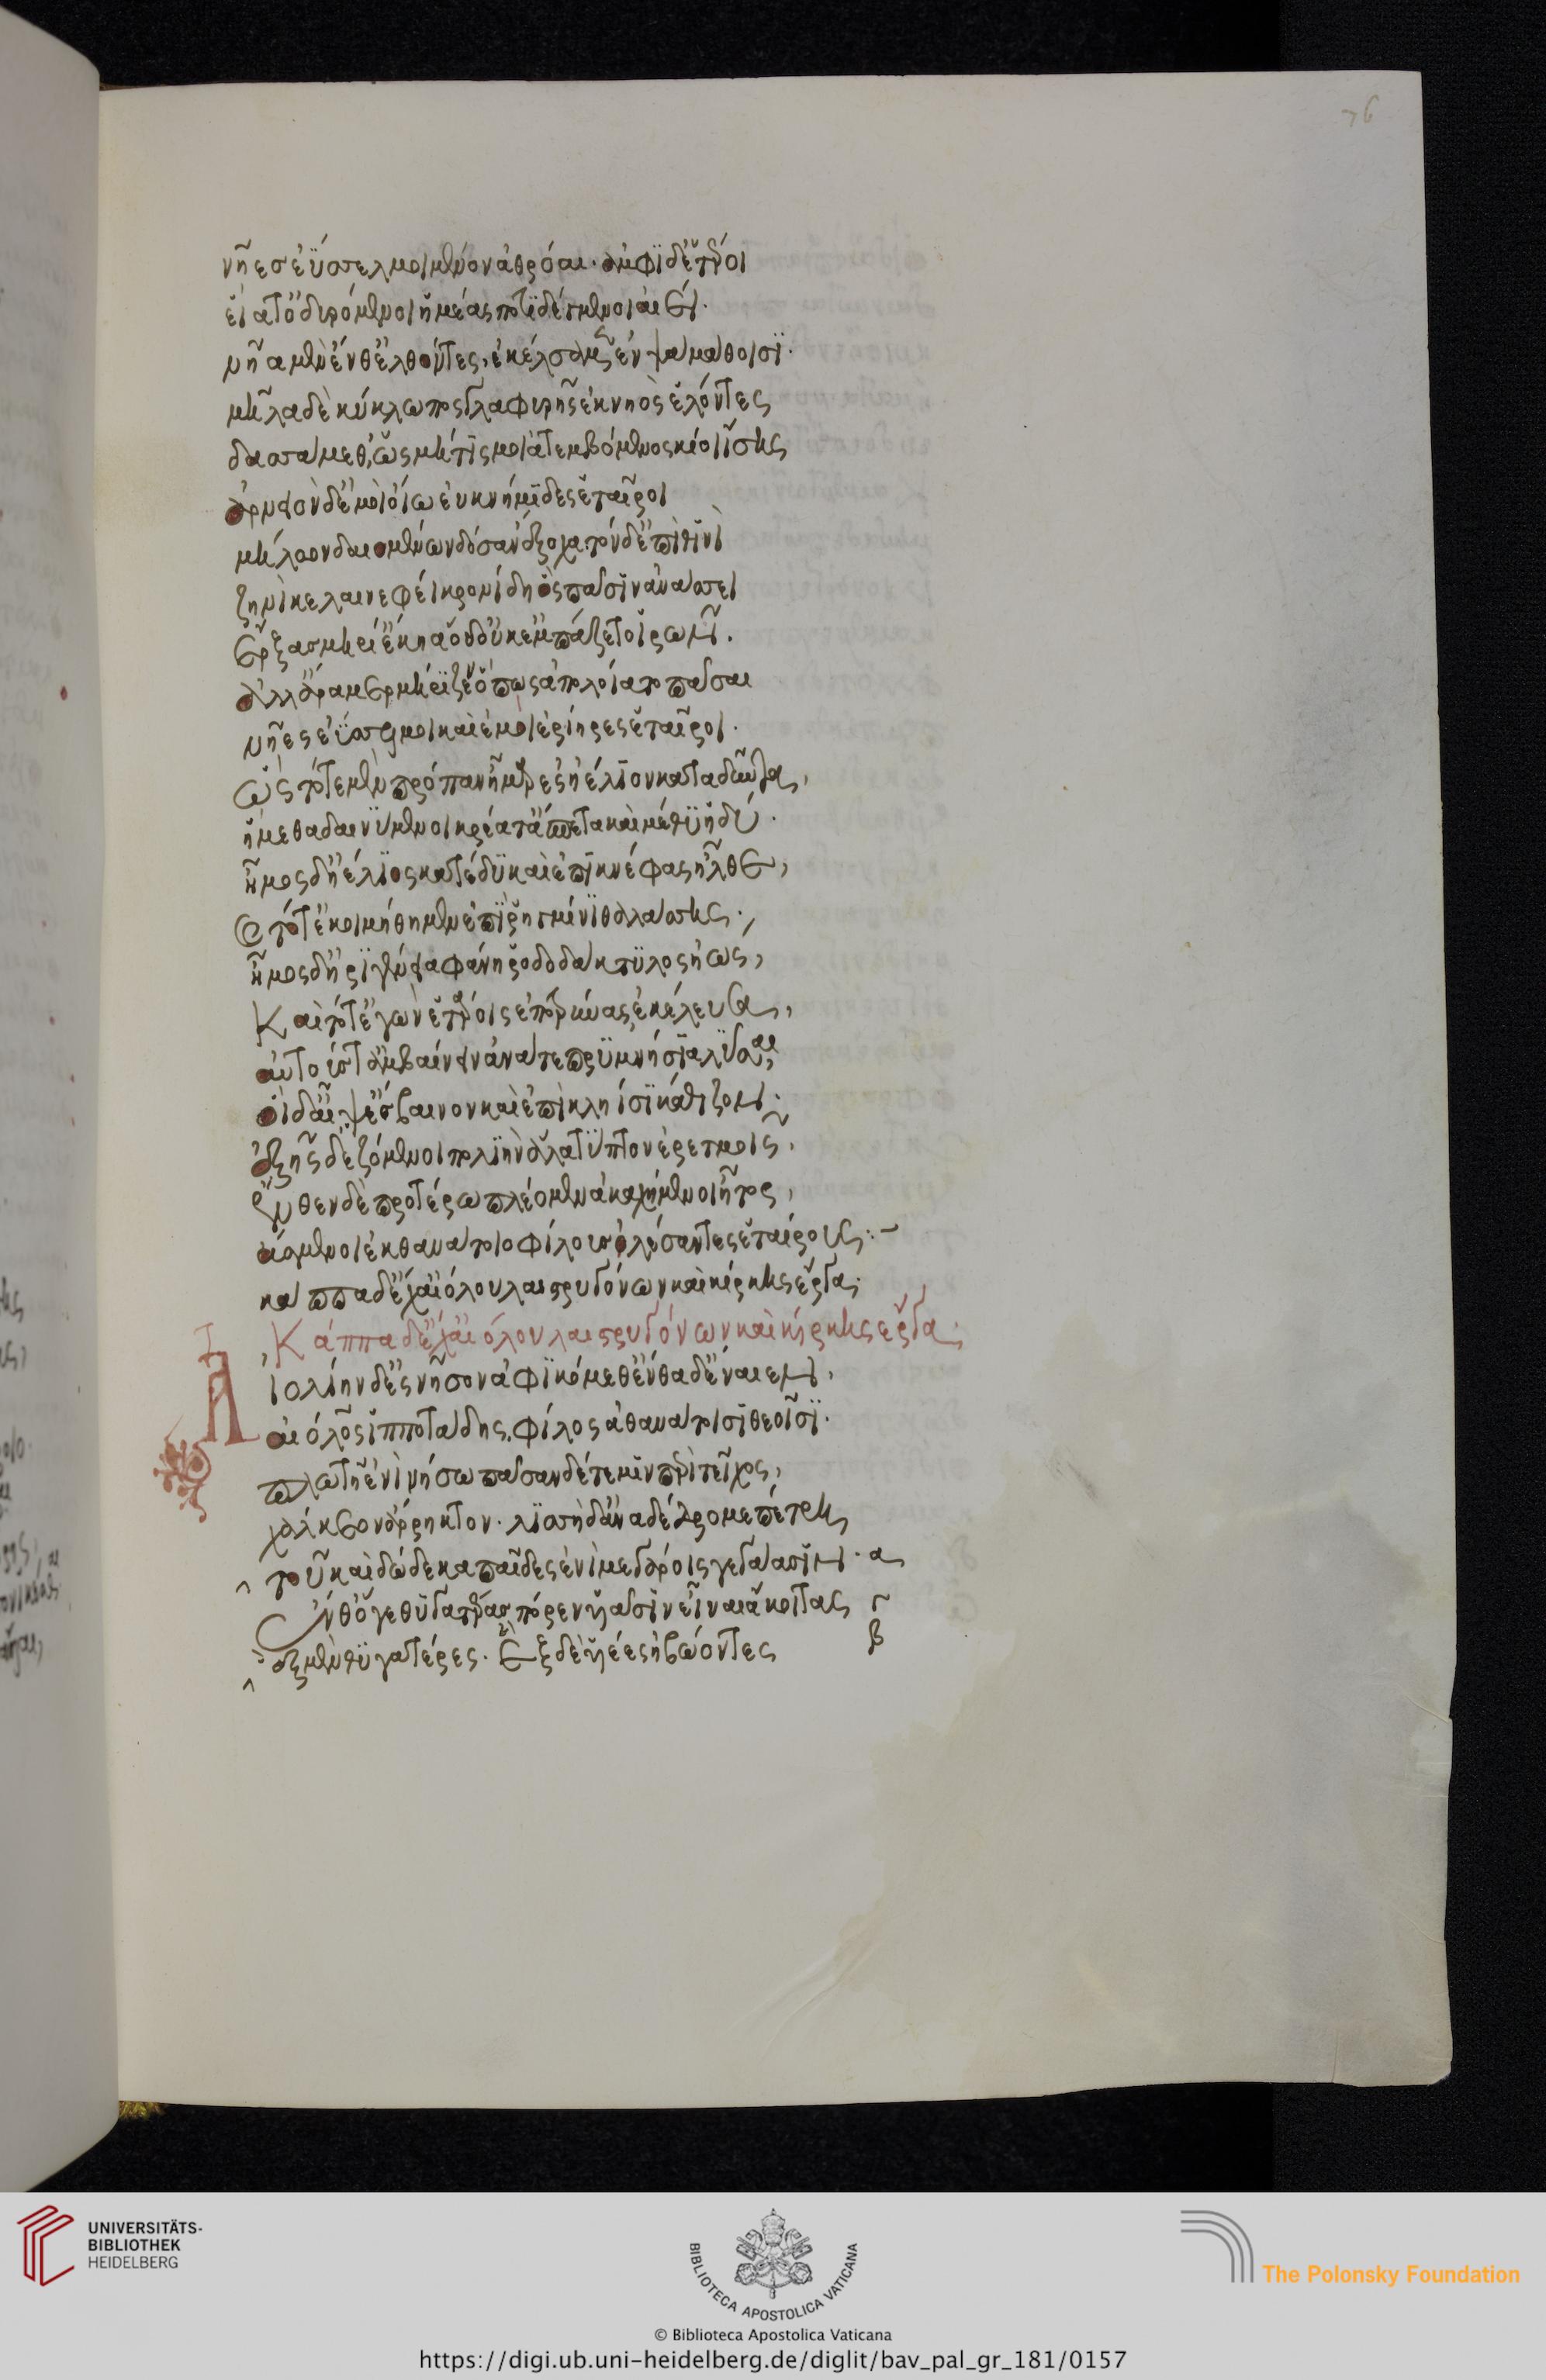 76
νῆες ἐΰσσελμοι μένον ἀθρόαι· ἀμφὶ δ' ἑταῖροι
εἵατ' ὀδυρόμενοι ἡμέας ποτιδέγμενοι αἰεί·
νῆα μὲν ἔνθ' ἐλθόντες, ἐκέλσαμεν ἐν ψαμάθοισϊ·
μῆλα δὲ κύκλωπος γλαφυρῆς ἐκ νηὸς ἑλόντες
δασσάμεθ', ὡς μήτίς μοι ἀτεμβόμενος κίοι ἴσης
ἀρνειὸν δ' ἐμοὶ οἴω ἐϋκνήμιδες ἑταῖροι
μήλων δαιομένων δόσαν ἔξοχα, τόνδ' ἐπὶ θινὶ
ζηνὶ κελαινεφέϊ κρονίδη ὃς πᾶσιν ἀνάσσει
ῥέξας μηρί' ἔκηα ὁ δ' οὐκ ἐμπάζετο ἱρῶν.
ἀλλ' ἄρα μερμήριζεν ὅπως ἀπολοίατο πᾶσαι
νῆες ἐΰσσελμοι καὶ ἐμοὶ ἐρίηρες ἑταῖροι.
ὣς τότε μὲν πρόπαν ἦμαρ ἐς ἠέλιον καταδύντα,
ἥμεθα δαινύμενοι κρέατ' ἄσπετα καὶ μέθυ ἡδύ.
ἦμος δ' ἠέλιος κατέδυ καὶ ἐπὶ κνέφας ἦλθε,
δὴ τότ' ἐκοιμήθημεν ἐπὶ ῥηγμῖνι θαλάσσης·
ἦμος δ' ἠριγένεια φάνη ῥοδοδάκτυλος ἠώς,
Καὶ τότ' ἐγὼν ἑτάροις ἐποτρύνας ἐκέλευσα,
αὐτούς τ' ἀμβαίνειν ἀνά τε πρυμνήσια λῦσαι,
οἱ δ' αἶψ' εἴσβαινον καὶ ἐπὶ κληῖσι κάθιζον·
ἑξῆς δ' ἑζόμενοι πολιὴν ἅλα τύπτον ἐρετμοῖς,
ἔνθεν δὲ προτέρω πλέομεν ἀκαχήμενοι ἦτορ,
ἄσμενοι ἐκ θανάτοιο φίλους ὀλέσαντες ἑταίρους:–
κάππα δ' ἔχει αἰόλου λαιστρυγόνων καὶ κίρκης ἔργα·
Κάππα δ' ἔχει αἰόλου λαιστρυγόνων καὶ κίρκης ἔργα·
Αἰολίην δ' ἐς νῆσον ἀφικόμεθ' ἔνθα δ' ἔναιεν,
αἴολος ἱπποτάδης, φίλος ἀθανάτοισι θεοῖσι·
πλωτῇ ἐνὶ νήσω πᾶσαν δέ τέ μιν πέρι τεῖχος,
χάλκεον ἄρρηκτον· λισσὴ δ' ἀναδέδρομε πέτρη
τοῦ καὶ δώδεκα παῖδες ἐνὶ μεγάροις γεγάασιν· α
ἔνθ' ὅγε θυγατέρας πόρεν υἱάσιν εἶναι ἀκοίτας γ
ἓξ μὲν θυγατέρες· ἓξ δ' υἱέες ἡβώοντες β
UNIVERSITÄTS-
BIBLIOTHEK
HEIDELBERG
BIBLIOTECA APOSTOLICA VATICANA
The Polonsky Foundation
© Biblioteca Apostolica Vaticana
https://digi.ub.uni-heidelberg.de/diglit/bav_pal_gr_181/0157